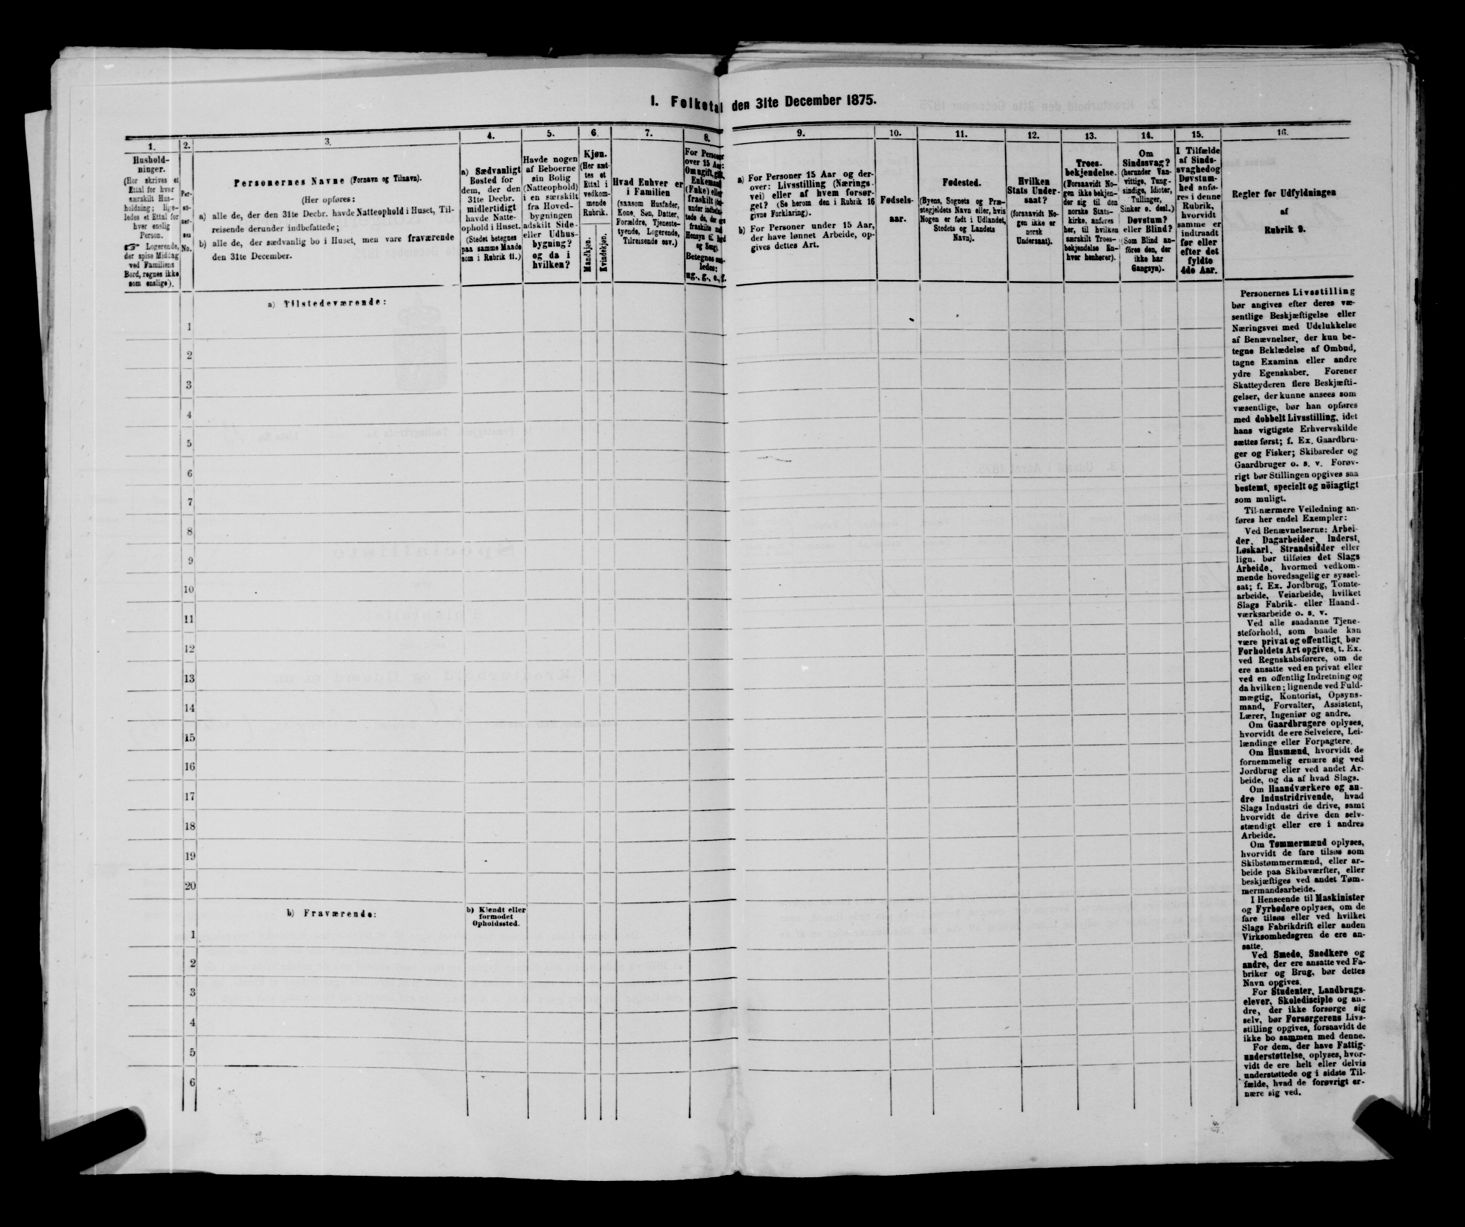 I. Folketal den 31te December 1875.
1.
Hushold-
ninger.
(Her skrives et
Ettal for hver
særskilt Hus-
holdning; lige-
ledes et Ettal for
hver enslig
Person.
☞ Logerende,
der spise Middag
ved Familiens
Bord, regnes ikke
som enslige).
2.
Per-
so-
ner-
nes
No.
3.
Personernes Navne (Fornavn og Tilnavn).
(Her opføres:
a) alle de, der den 31te Decbr. havde Natteophold i Huset, Til-
reisende derunder indbefattede;
b) alle de, der sædvanlig bo i Huset, men vare fraværende
den 31te December.
4.
a) Sædvanligt
Bosted for
dem, der den
31te Decbr.
midlertidigt
havde Natte-
ophold i Huset.
(Stedet betegnes
paa samme Maade
som i Rubrik 11.)
5.
Havde nogen
af Beboerne
sin Bolig
(Natteophold)
i en særskilt
fra Hoved-
bygningen
adskilt Side-
eller Udhus-
bygning?
og da i
hvilken?
6.
Kjøn.
(Her sæt-
tes et
Ettal i
vedkom-
mende
Rubrik.
Mandkjøn.
Kvindekjøn.
7.
Hvad Enhver er
i Familien
(saasom Husfader,
Kone, Søn, Datter,
Forældre, Tjeneste-
tyende, Logerende,
Tilreisende osv.)
8.
For Personer
over 15 Aar:
Om ugift, gift,
Enkemand
(Enke) eller
fraskilt
Betegnes saa-
ledes:
ug., g., e., f.
9.
a) For Personer 15 Aar og der-
over: Livsstilling (Nærings-
vei) eller af hvem forsør-
get? (Se herom den i Rubrik 16
givne Forklaring).
b) For Personer under 15 Aar,
der have lønnet Arbeide, op-
gives dettes Art.
10.
Fødsels-
aar.
11.
Fødested.
(Byens, Sognets og Præ-
stegjeldets Navn eller, hvis
Nogen er født i Udlandet,
Stedets og Landets
Navn).
12.
Hvilken
Stats Under-
saat?
(forsaavidt No-
gen ikke er
norsk
Undersaat).
13.
Troes-
bekjendelse.
(Forsaavidt No-
gen ikke bekjen-
der sig til den
norske Stats-
kirke, anføres
her, til hvilken
særskilt Troes-
bekjendelse En-
hver henhører).
14.
Om
Sindssvag?
(herunder Van-
vittige, Tung-
sindige, Idioter,
Tullinger,
Sinker o. desl.)
Døvstum?
eller Blind?
(Som Blind an-
føres den, der
ikke har
Gangsyn).
15.
I Tilfælde
af Sinds-
svaghedog
Døvstum-
hed anfø-
res i denne
Rubrik,
hvorvidt
samme er
indtraadt
før eller
efter det
fyldte
4de Aar.
16.
Regler for Udfyldningen
af
Rubrik 9.
a) Tilstedeværende:
1
2
3
4
5
6
7
8
9
10
11
12
13
14
15
16
17
18
19
20
b) Fraværende:
b) Kjendt eller
formodet
Opholdssted.
1
2
3
4
5
6
Personernes Livsstilling
bør angives efter deres væ-
sentlige Beskjæftigelse eller
Næringsvei med Udelukkelse
af Benævnelser, der kun be-
tegne Beklædelse af Ombud,
tagne Examina eller andre
ydre Egenskaber. Forener
Skatteyderen flere Beskjæfti-
gelser, der kunne ansees som
væsentlige, bør han opføres
med dobbelt Livsstilling, idet
hans vigtigste Erhvervskilde
sættes først; f. Ex. Gaardbru-
ger og Fisker; Skibsreder og
Gaardbruger o. s. v. Forøv-
rigt bør Stillingen opgives saa
bestemt, specielt og nöiagtigt
som muligt.
Til nærmere Veiledning an-
føres her endel Exempler:
Ved Benævnelserne: Arbei-
der, Dagarbeider, Inderst,
Løskarl, Strandsidder eller
lign. bør tilføies det Slags
Arbeide, hvormed vedkom-
mende hovedsagelig er syssel-
sat; f. Ex. Jordbrug, Tomte-
arbeide, Veiarbeide, hvilket
Slags Fabrik- eller Haand-
værksarbeide o. s. v.
Ved alle saadanne Tjene-
steforhold, som baade kan
være privat og offentligt, bør
Forholdets Art opgives, t. Ex.
ved Regnskabsførere, om de
ere ansatte ved en privat eller
ved en offentlig Indretning og
da hvilken; lignende ved Fuld-
mægtig, Kontorist, Opsyns-
mand, Forvalter, Assistent,
Lærer, Ingeniør og andre.
Om Gaardbrugere oplyses,
hvorvidt de ere Selveiere, Lei-
lændinge eller Forpagtere.
Om Husmænd, hvorvidt de
fornemmelig ernære sig ved
Jordbrug eller ved andet Ar-
beide, og da af hvad Slags.
Om Haandværkere og an-
dre Industridrivende, hvad
Slags Industri de drive, samt
hvorvidt de drive den selv-
stændigt eller ere i andres
Arbeide.
Om Tømmermænd oplyses,
hvorvidt de fare tilsøs som
Skibstømmermænd, eller ar-
beide paa Skibsværfter, eller
beskjæftiges ved andet Tøm-
mermandsarbeide.
I Henseende til Maskinister
og Fyrbødere oplyses, om de
fare tilsøs eller ved hvilket
Slags Fabrikdrift eller anden
Virksomhedsgren de ere an-
satte.
Ved Smede, Snedkere og
andre, der ere ansatte ved Fa-
briker og Brug, bør dettes
Navn opgives.
For Studenter, Landbrugs-
elever, Skoledisciple og an-
dre, der ikke forsørge sig
selv, bør Forsørgerens Livs-
stilling opgives, forsaavidt de
ikke bo sammen med denne.
For dem, der have Fattig-
understøttelse, oplyses, hvor-
vidt de ere helt eller delvis
understøttede og i sidste Til-
fælde, hvad de forøvrigt er-
nære sig ved.